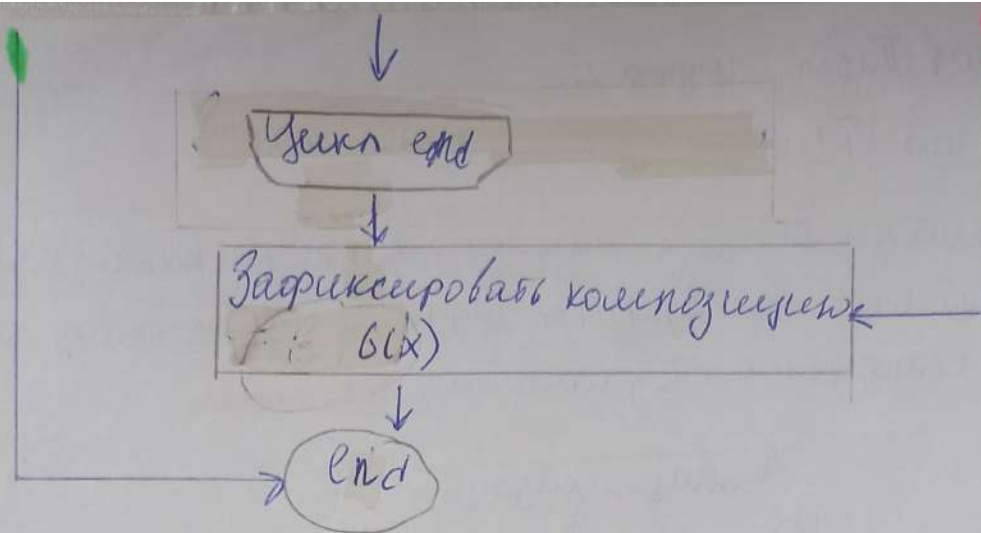 Цикл end
Зафиксировать композицию
G(x)
end